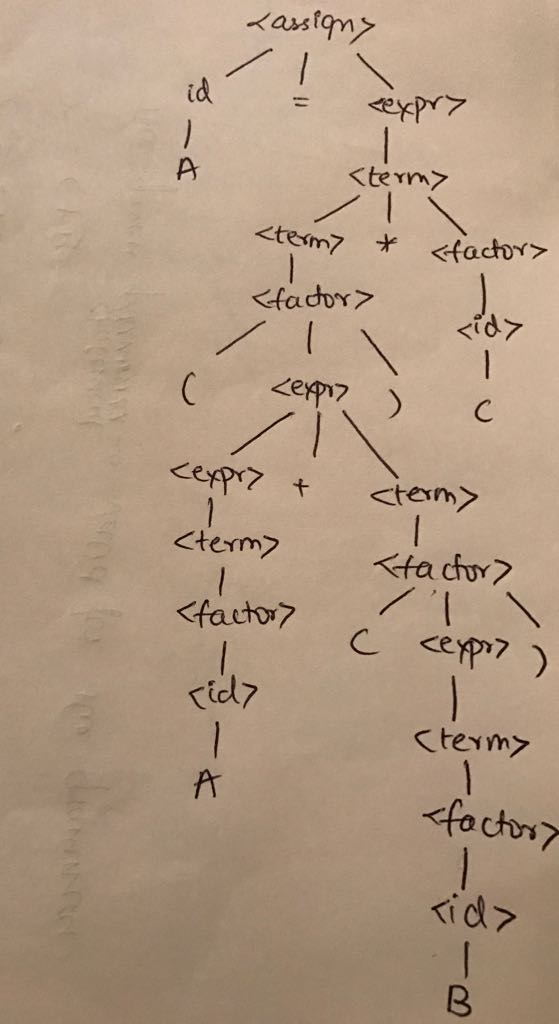 <assign>
id = <expr>
A
<term>
<term> * <factor>
<factor> <id>
( <expr> ) C
<expr> + <term>
<term> <factor>
<factor> ( <expr> )
<id> <term>
A <factor>
<id>
B